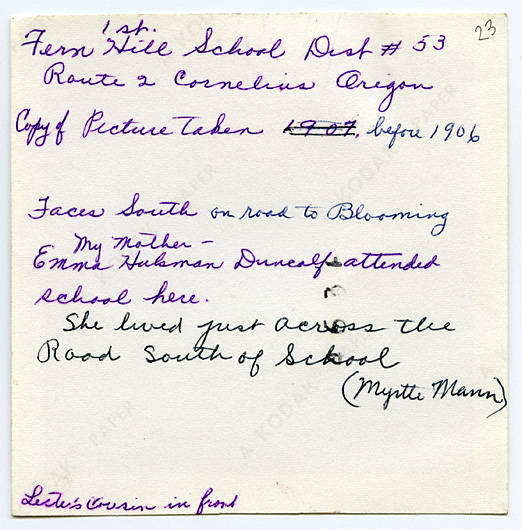 23
1st.
Fern Hill School Dist # 53
Route 2 Cornelius Origon
Copy of Picture Taken 1907, before 1906
Faces South on road to Blooming
My Mother -
Emma Hulsman Duncalf attended
school here.
She lived just across the
Road South of School
(Myrtle Mann)
Lester's cousin in front
A KODAK PAPER